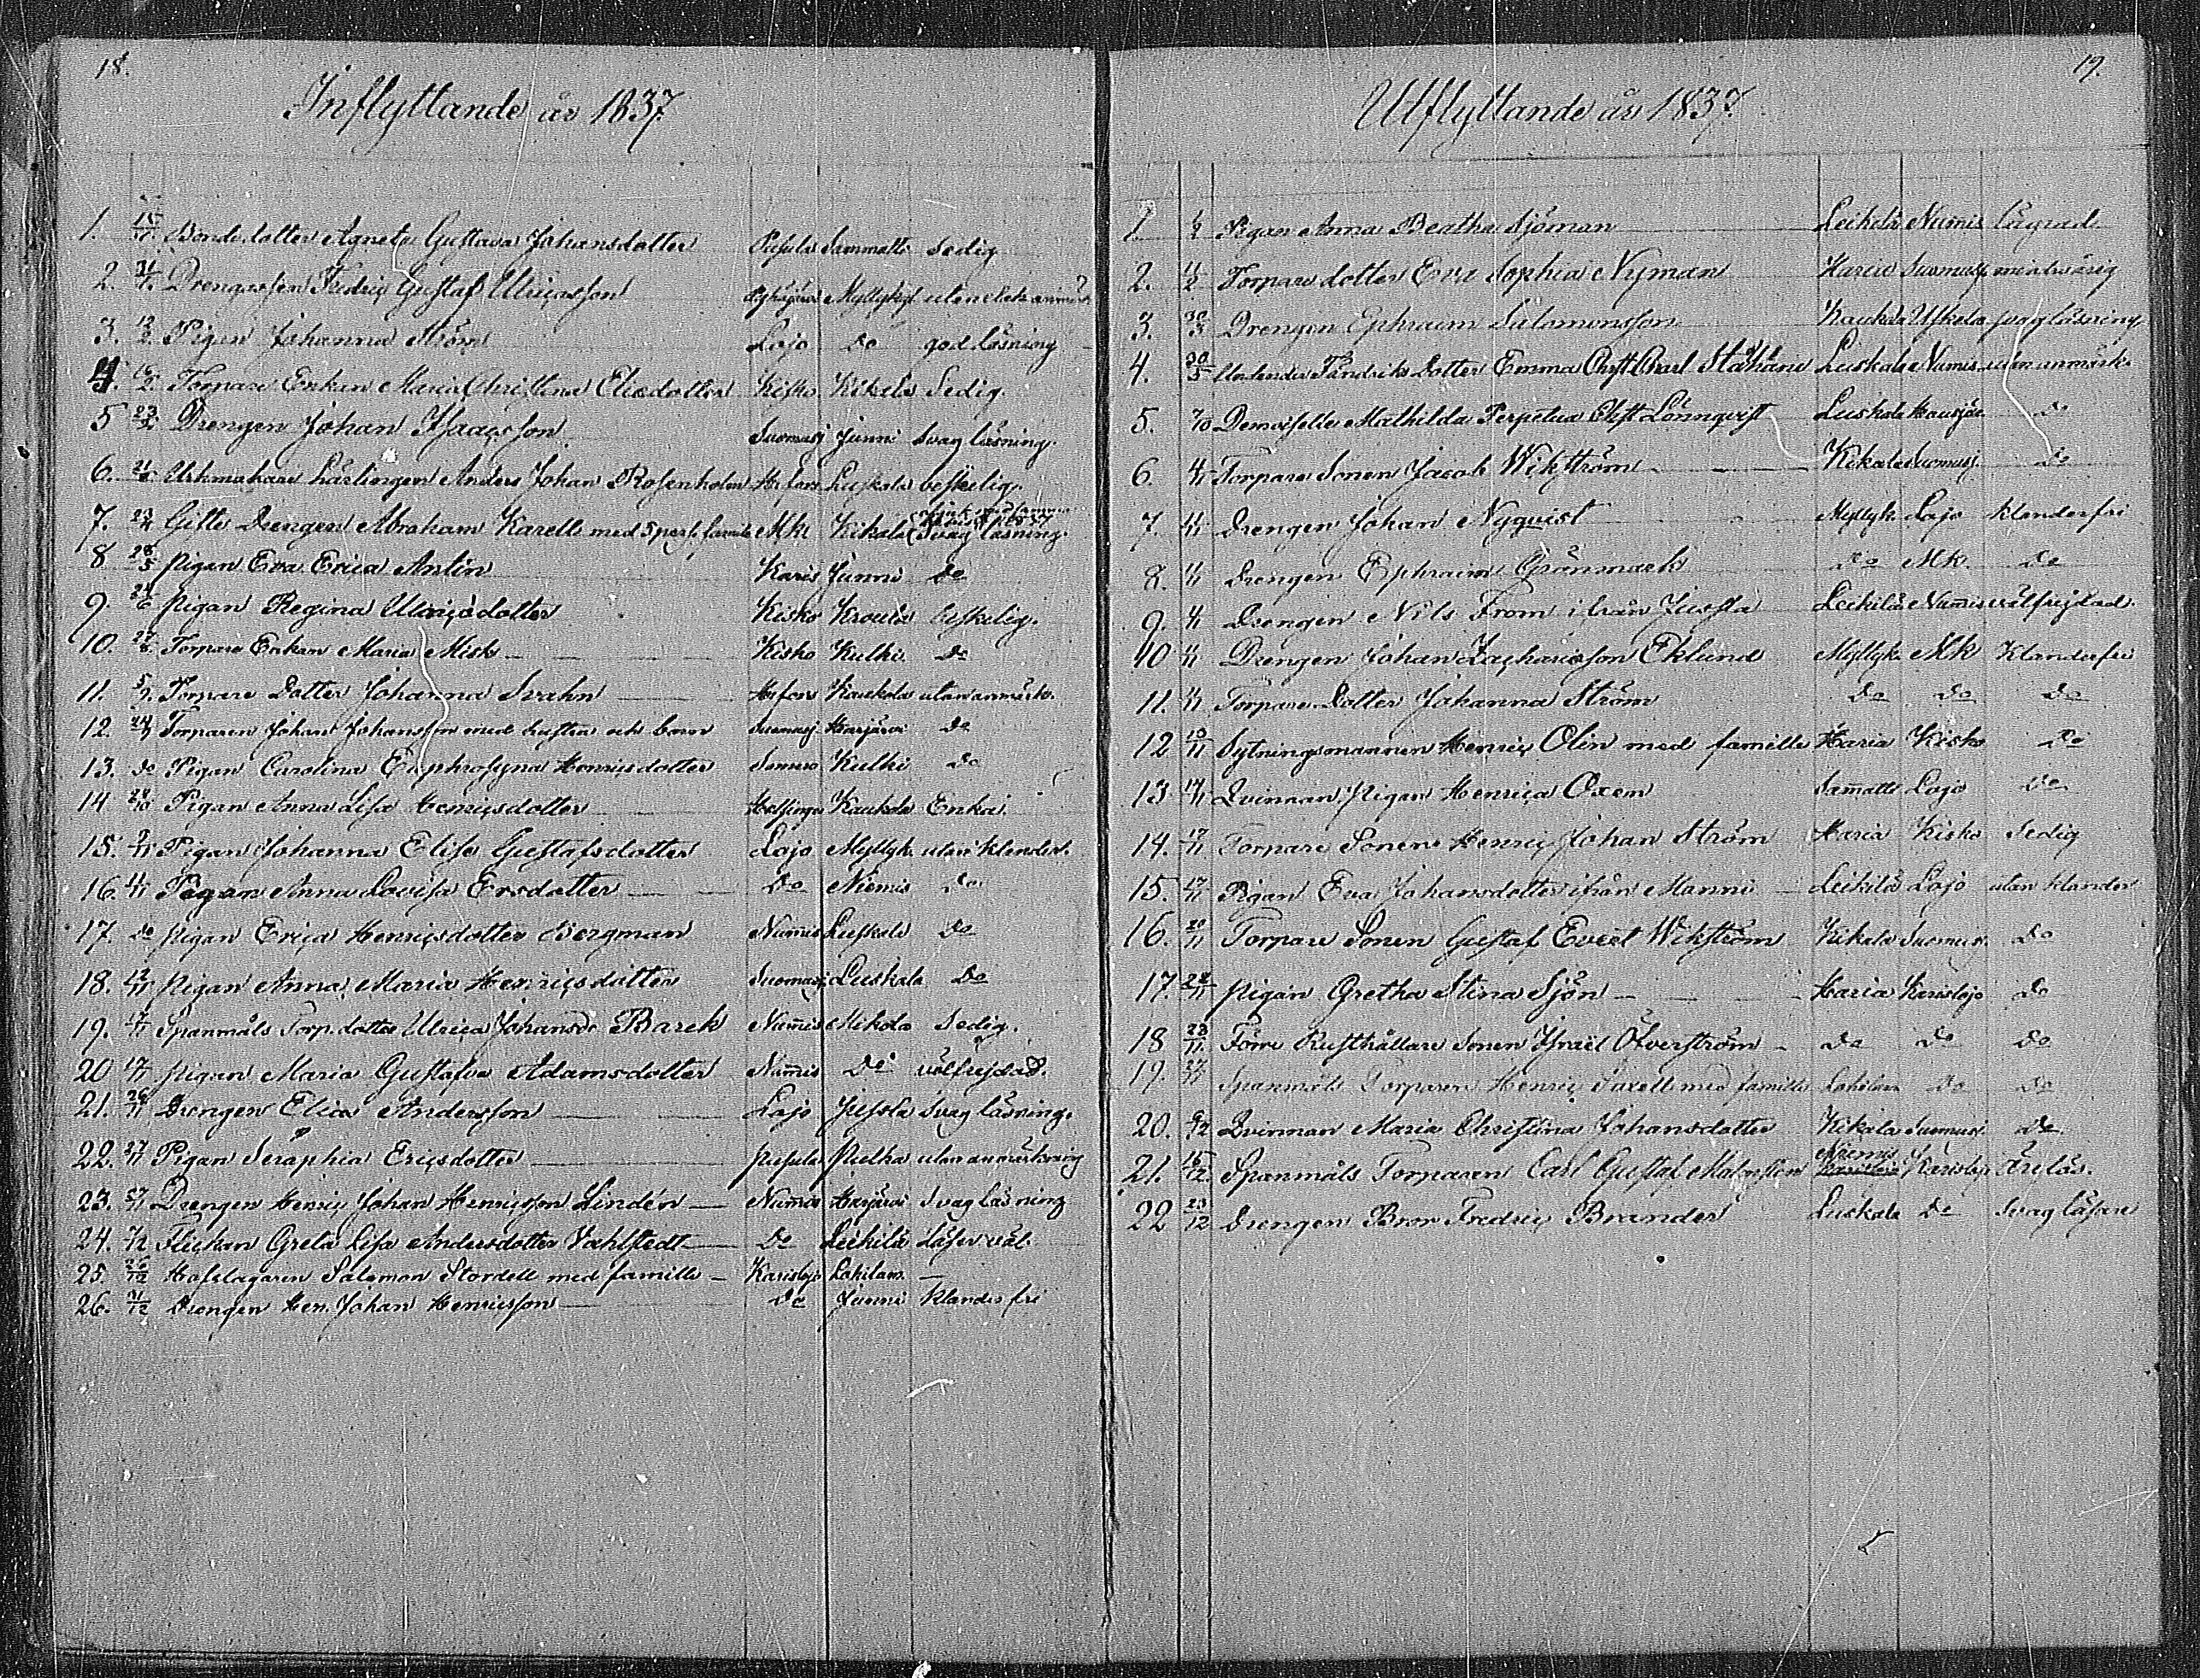 18.
Inflyttande år 1837.
1. 15/1 Bonde dotter Agneta Gustava Johansdotter Pusula Sammatti Sedig
2. 31/1 Drengsson Fredric Gustaf Ulricsson Myllykyl utan anmärk
3. 12/2 Pigan Johanna Ström Lojo Do god läsning
4. 16/2 Torpare Enkan Maria Christina Eliedotter Kisko Kikala Sedig.
5 23/2 Drengen Johan Isaacsson Suomusj Junni Svag läsning.
6. 21/4 Urkmakare Lärlingen Anders Johan Rosenholm H:fors Luskala beskelig.
7. 23/4 Gifte Drengen Abraham Karell med 5 pers. familie Mk Kikala Svag läsning.
8 28/5 Pigan Eva Erica Antin Karis Junni Do
9. 24/6 Pigan Regina Ulricsdotter Kisko Kroula beskelig.
10. 27/8 Torpare Enkan Maria Misk Kisko Kulki Do
11. 5/9 Torpare Dotter Johanna Svahn H:fors Kaukola utan anmärk.
12. 24/9 Torparen Johan Johansson med hustru och barn Suomusj Harjärvi Do
13. Do Pigan Carolina Euphrosyna Henricsdotter Somero Kulki Do
14 29/10 Pigan Anna Lisa Henricsdotter Helsinge Kaukola Enka.
15. 9/11 Pigan Johanna Elisa Gustafsdotter Lojo Myllyk. utan klander.
16. 11/11 Pigan Anna Lovisa Ersdotter Do Niemis Do
17. Do Pigan Erica Henricsdotter Bergman Nummis Luskala Do
18. 12/11 Pigan Anna Maria Henricsdotter Suomusj Luskala Do
19. 17/11 Spanmåls Torp. dotter Ulrica Johansd. Barck Nummis Kikola Sedig.
20 17/11 Pigan Maria Gustafva Adamsdotter Nummis Do välfrejdad.
21. 26/11 Drengen Elias Andersson Lojo Jussla Svag läsning.
22. 27/11 Pigan Seraphia Ericsdotter Pusula Pulka utan anmärkning
23. 27/11 Drengen Henric Johan Henricsson Lindén Nummis Harjärvi Svag läsning
24. 7/12 Flickan Greta Lisa Andersdotter Vahlstedt Do Leikilä Läser väl.
25. 26/12 Hofslagaren Salomon Stordell med famille Karislojo Lohilam.
26. 31/12 Drengen Hen. Johan Henricsson Do Junni Klander fri
19.
Utflyttande år 1837.
1 Pigan Anna Beatha Sjöman Leikilä Nummis
2. 11/2 Torpare dotter Eva Sophia Nyman Haria Suomusj
3. 30/3 Drengen Ephraim Salomonsson Kaukola Uskela svag läsning
4. 30/5 Dotter Emma Luskala Nummis utan anmärk.
5. 7/10 Demoiselle Mathilda Perpetua Lönnqvist Luskala Hausjär. Do
6. Torpare Sonen Jacob Wikström Kikala Suomusj. Do
7. Drengen Johan Nyqvist Myllyk. Lojo Klanderfri
8. Drengen Ephraim Grönmark Do Mk. Do
9. Drengen Nils From ifrån Jussla Leikilä Nummis välfrejdad.
10 Drengen Johan Zachariasson Eklund Myllyk Mk Klanderfri
11. Torpare Dotter Johanna Ström Do Do Do
12 10/11 Sytningsmannen Henric Olin med famille Haria Kisko Do
13 14/11 Qvinnan Pigan Henrica Oxen Sammatti Lojo Do
14. 17/11 Torpare Sonen Henric Johan Ström Haria Kisko Sedig
15. 17/11 Pigan Eva Johansdotter ifrån Manni Leikilä Lojo utan klander
16. 20/11 Torpare Sonen Gustaf Evert Wikström Kikala Suomusj. Do
17. Pigan Gretha Stina Sjön Haria Karislojo Do
18 23/11 Förre Rusthållare Sonen Israel Öfverström Do Do Do
19. Spanmåls Torparen Henric Saxell med famille Lohilam Do Do
20. 9/12 Qvinnan Maria Christina Johansdotter Kikala Suomusj. Do
21. 15/12 Spanmåls Torparen Carl Gustaf Malmsten Niemis Karislojo
22 23/12 Drengen Bror Fredric Brander Luskala Do Svag läsare